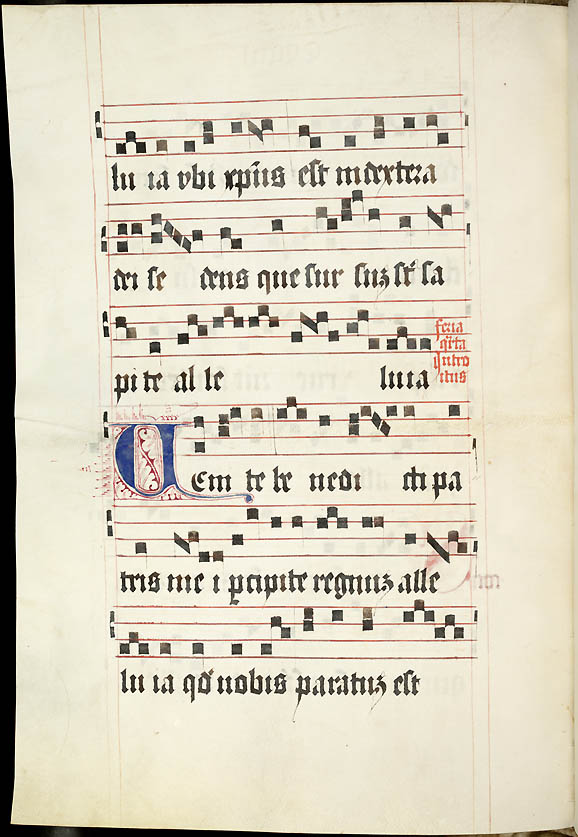 lu ia vbi xp̄us est in dextera
dei se dens que sur suꝫ sūt sa
pi te al le luia
feria
q̄rta
Intro
itus
Uem te be nedi cti pa
tris me i ꝑcipite regnuꝫ alle
lu ia qd̄ uobis paratuꝫ est